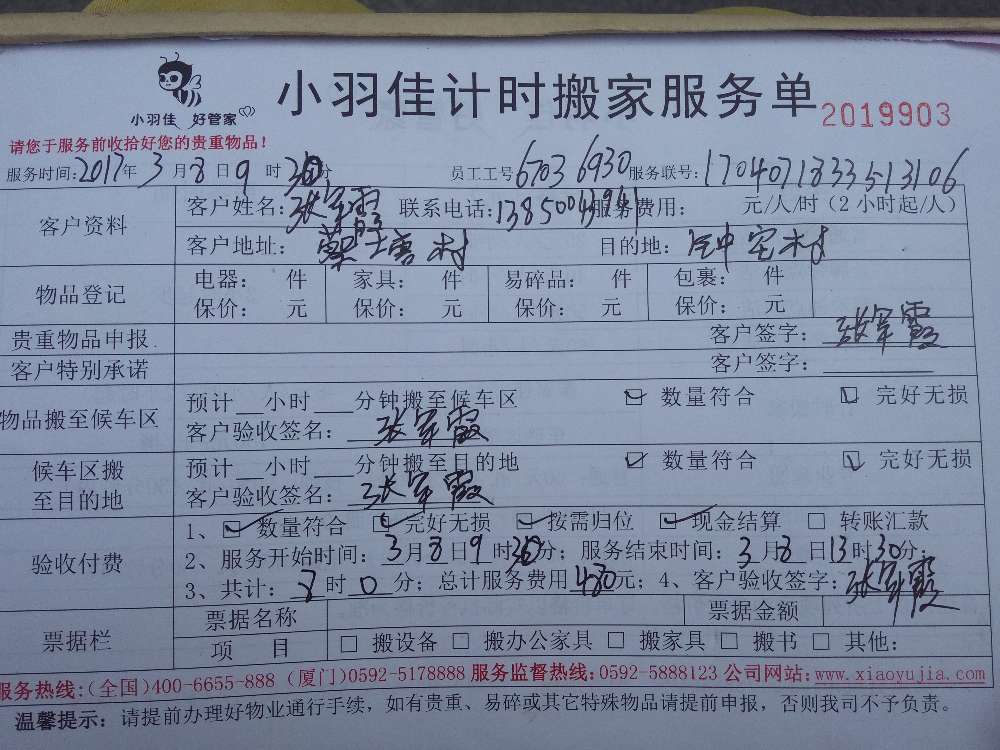 小羽佳 好管家
小羽佳计时搬家服务单 2019903
请您于服务前收拾好您的贵重物品!
服务时间:2017年3月8日9时30分 员工工号6703 6930服务联号:1704071833513106
客户资料 客户姓名:张军霞 联系电话:13850043941服务费用: 元/人/时(2小时起/人)
客户地址: 蔡塘村 目的地: 钟宅村
物品登记 电器: 件 家具: 件 易碎品: 件 包裹: 件
保价: 元 保价: 元 保价: 元 保价: 元
贵重物品申报 客户签字:张军霞
客户特别承诺 客户签字:
物品搬至候车区 预计__小时___分钟搬至候车区 ☑ 数量符合 ☑ 完好无损
客户验收签名:张军霞
候车区搬至目的地 预计__小时___分钟搬至目的地 ☑ 数量符合 ☑ 完好无损
客户验收签名:张军霞
验收付费 1、☑数量符合 ☑完好无损 ☑按需归位 ☑现金结算 □ 转账汇款
2、服务开始时间:3月8日9时30分;服务结束时间:3月8日13时30分;
3、共计:8时0分;总计服务费用480元;4、客户验收签字:张军霞
票据栏 票据名称 票据金额
项 目 □ 搬设备 □ 搬办公家具 □ 搬家具 □ 搬书 □ 其他:
服务热线:(全国)400-6655-888 (厦门)0592-5178888 服务监督热线:0592-5888123 公司网站:www.xiaoyujia.com
温馨提示:请提前办理好物业通行手续,如有贵重、易碎或其它特殊物品请提前申报,否则我司不予负责。